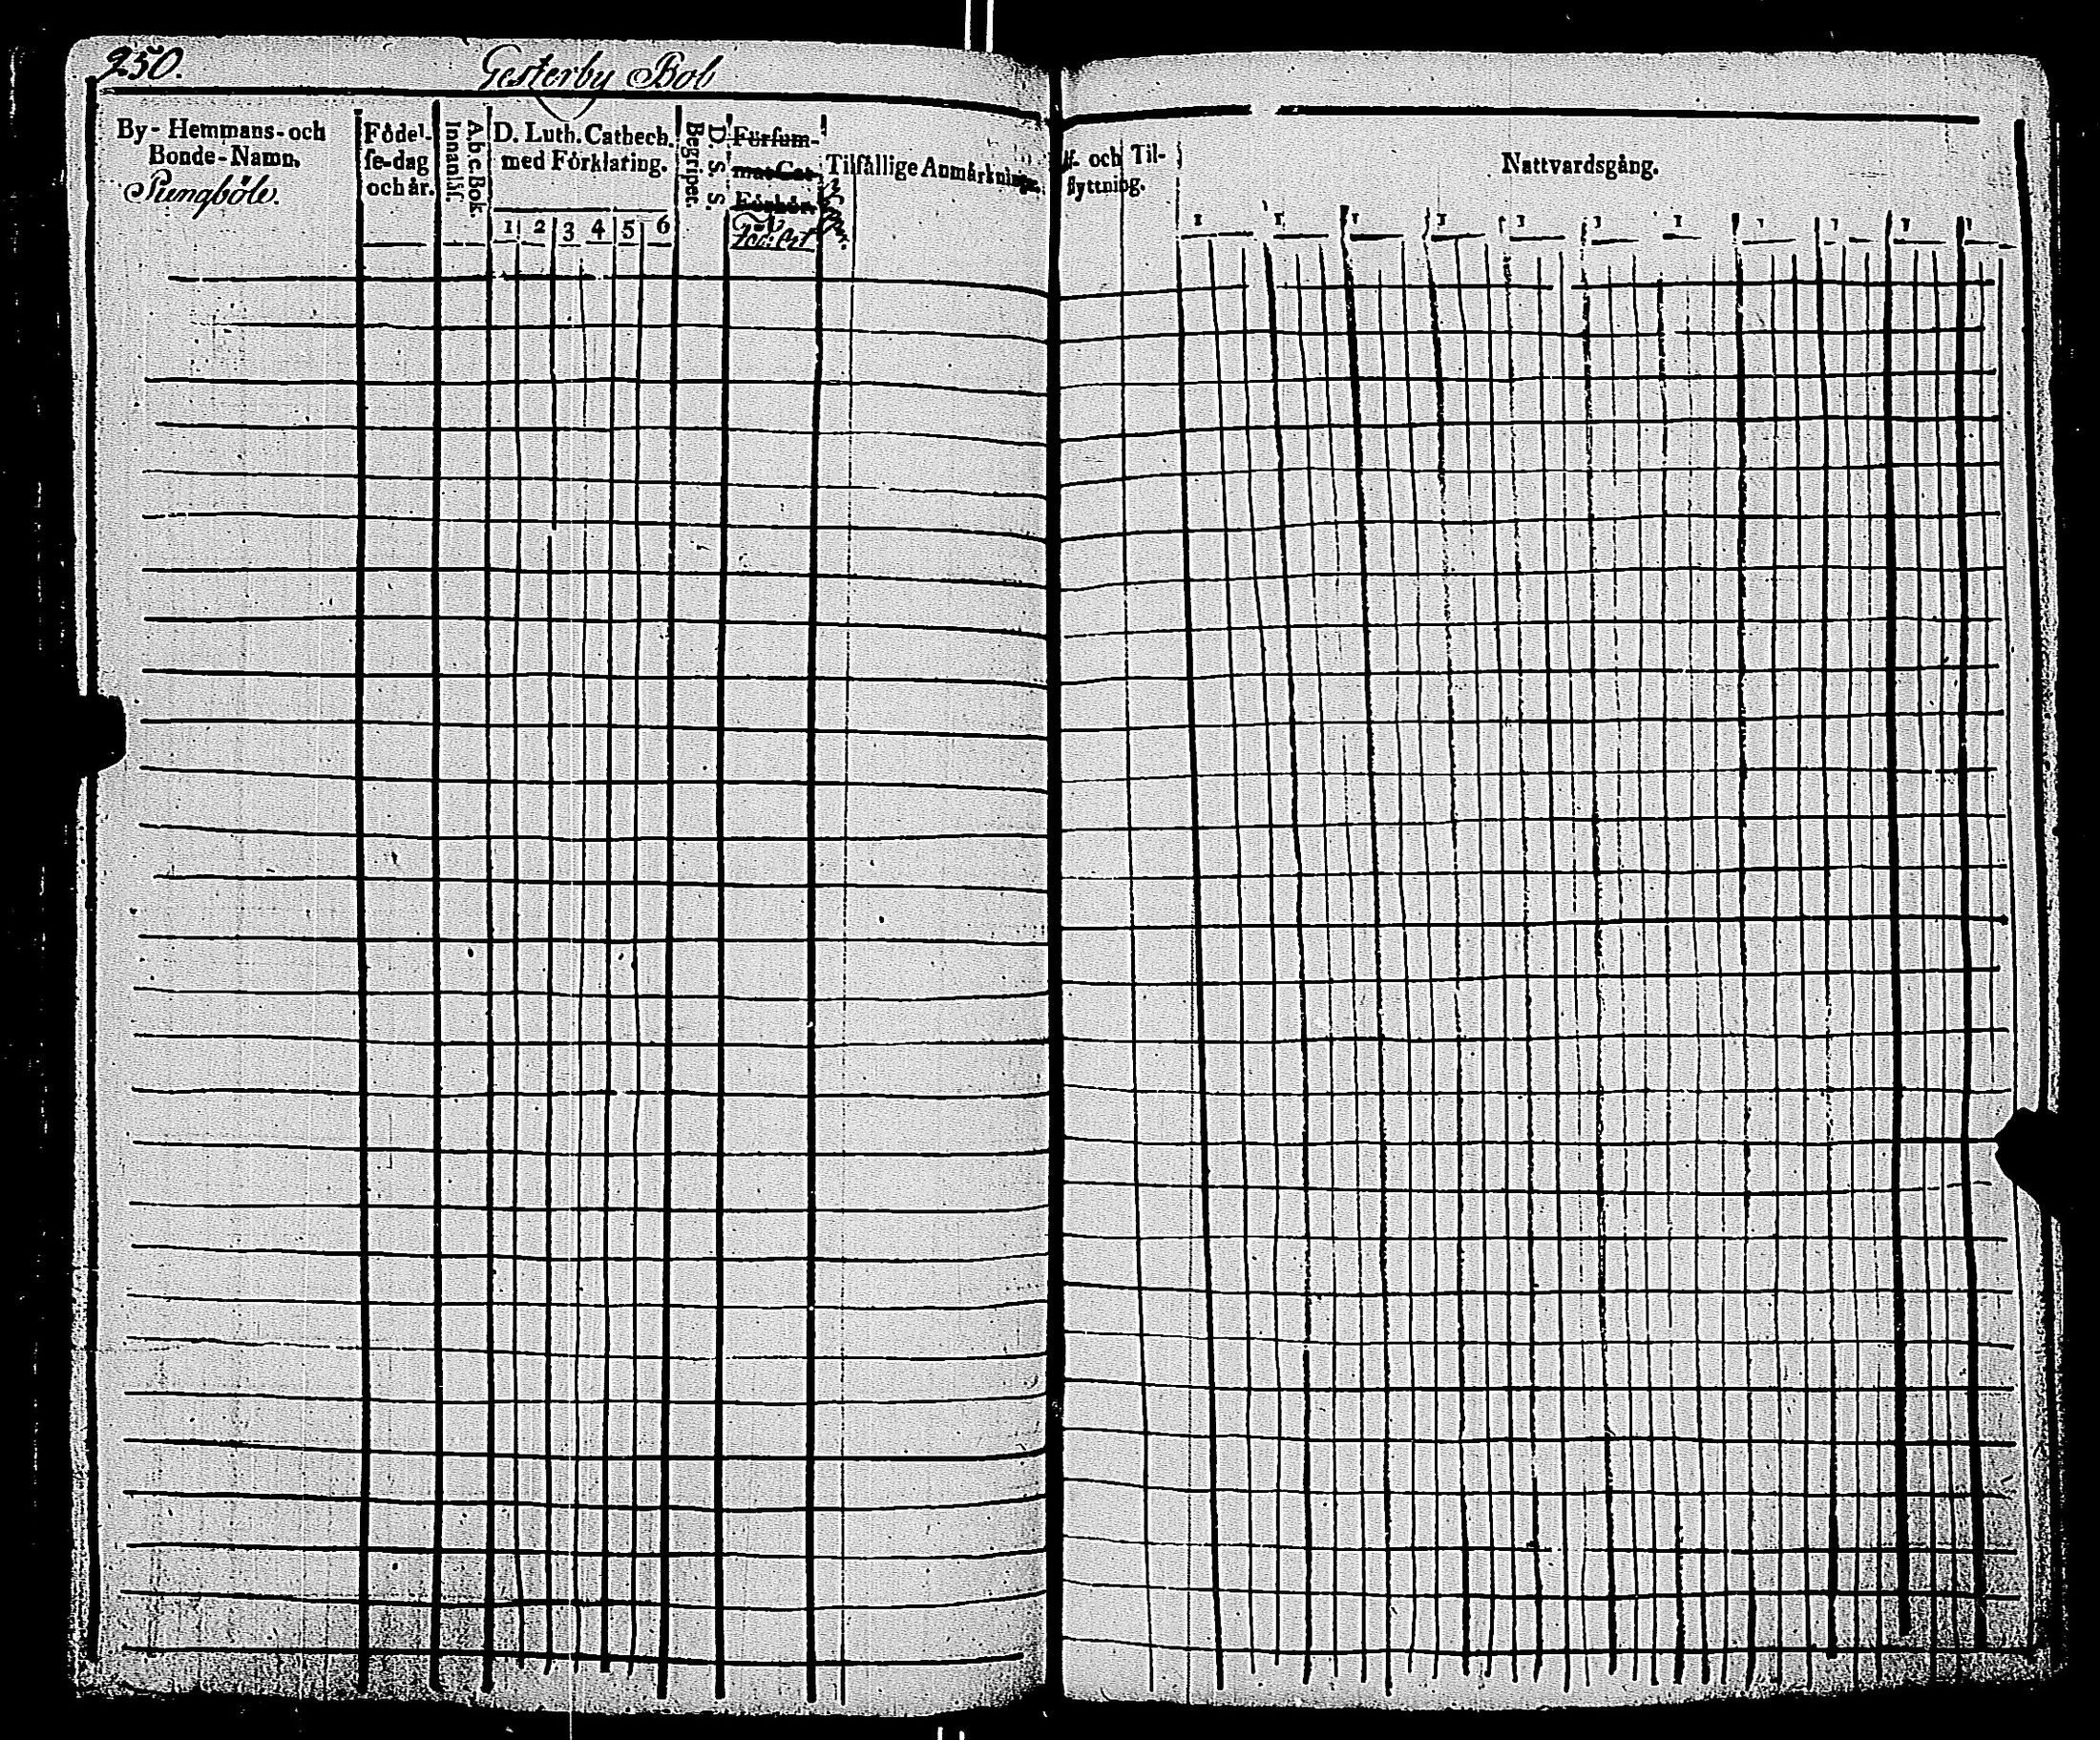 250.
Gesterby Bol
By-Hemmans-och
Bonde-Namn.
Pungböle.
Födel-
se-dag
och år.
Abc Bok.
Innanläs.
D. Luth. Cathech.
med Förklaring.
1 2 3 4 5 6
D. S. S.
Begripet.
Försum-
mat Cat
Förhör.
Tilfällige Anmärkningar.
Af- och Til-
flyttning.
Nattvardsgång.